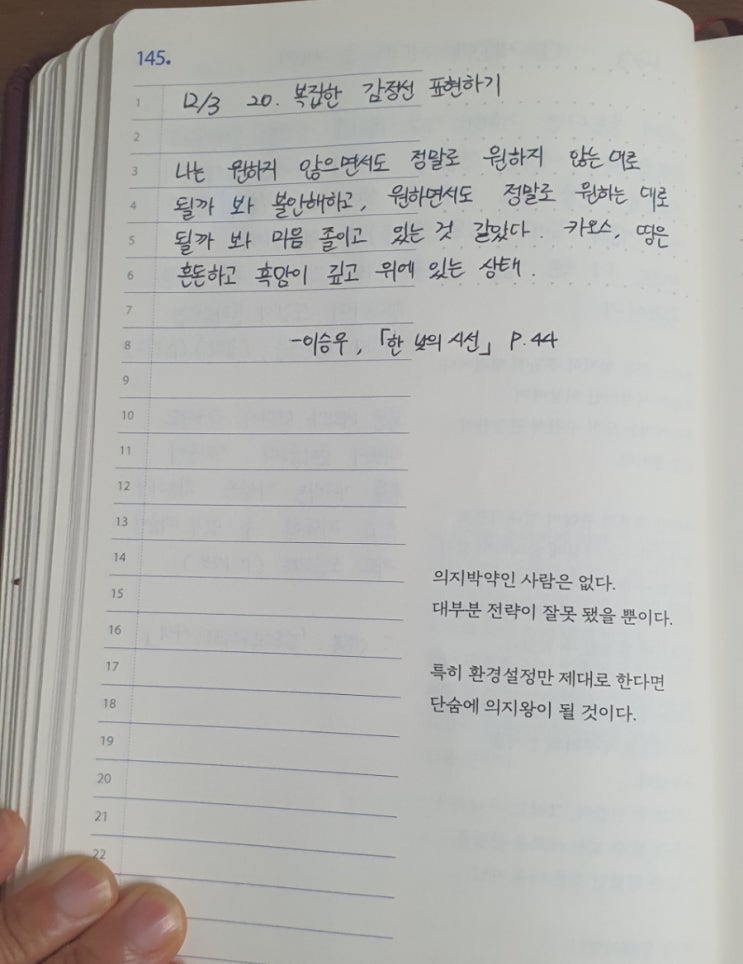 145.
1
12/3 20. 복잡한 감정선 표현하기
2
3
나는 원하지 않으면서도 정말로 원하지 않는 대로
4
될까 봐 불안해하고, 원하면서도 정말로 원하는 대로
5
될까 봐 마음 졸이고 있는 것 같았다. 카오스, 땅은
6
혼돈하고 흑암이 깊고 위에 있는 상태.
7
8
-이승우, 「한 낮의 시선」 P.44
9
10
11
12
13
14
의지박약인 사람은 없다.
15
대부분 전략이 잘못 됐을 뿐이다.
16
17
특히 환경설정만 제대로 한다면
18
단숨에 의지왕이 될 것이다.
19
20
21
22